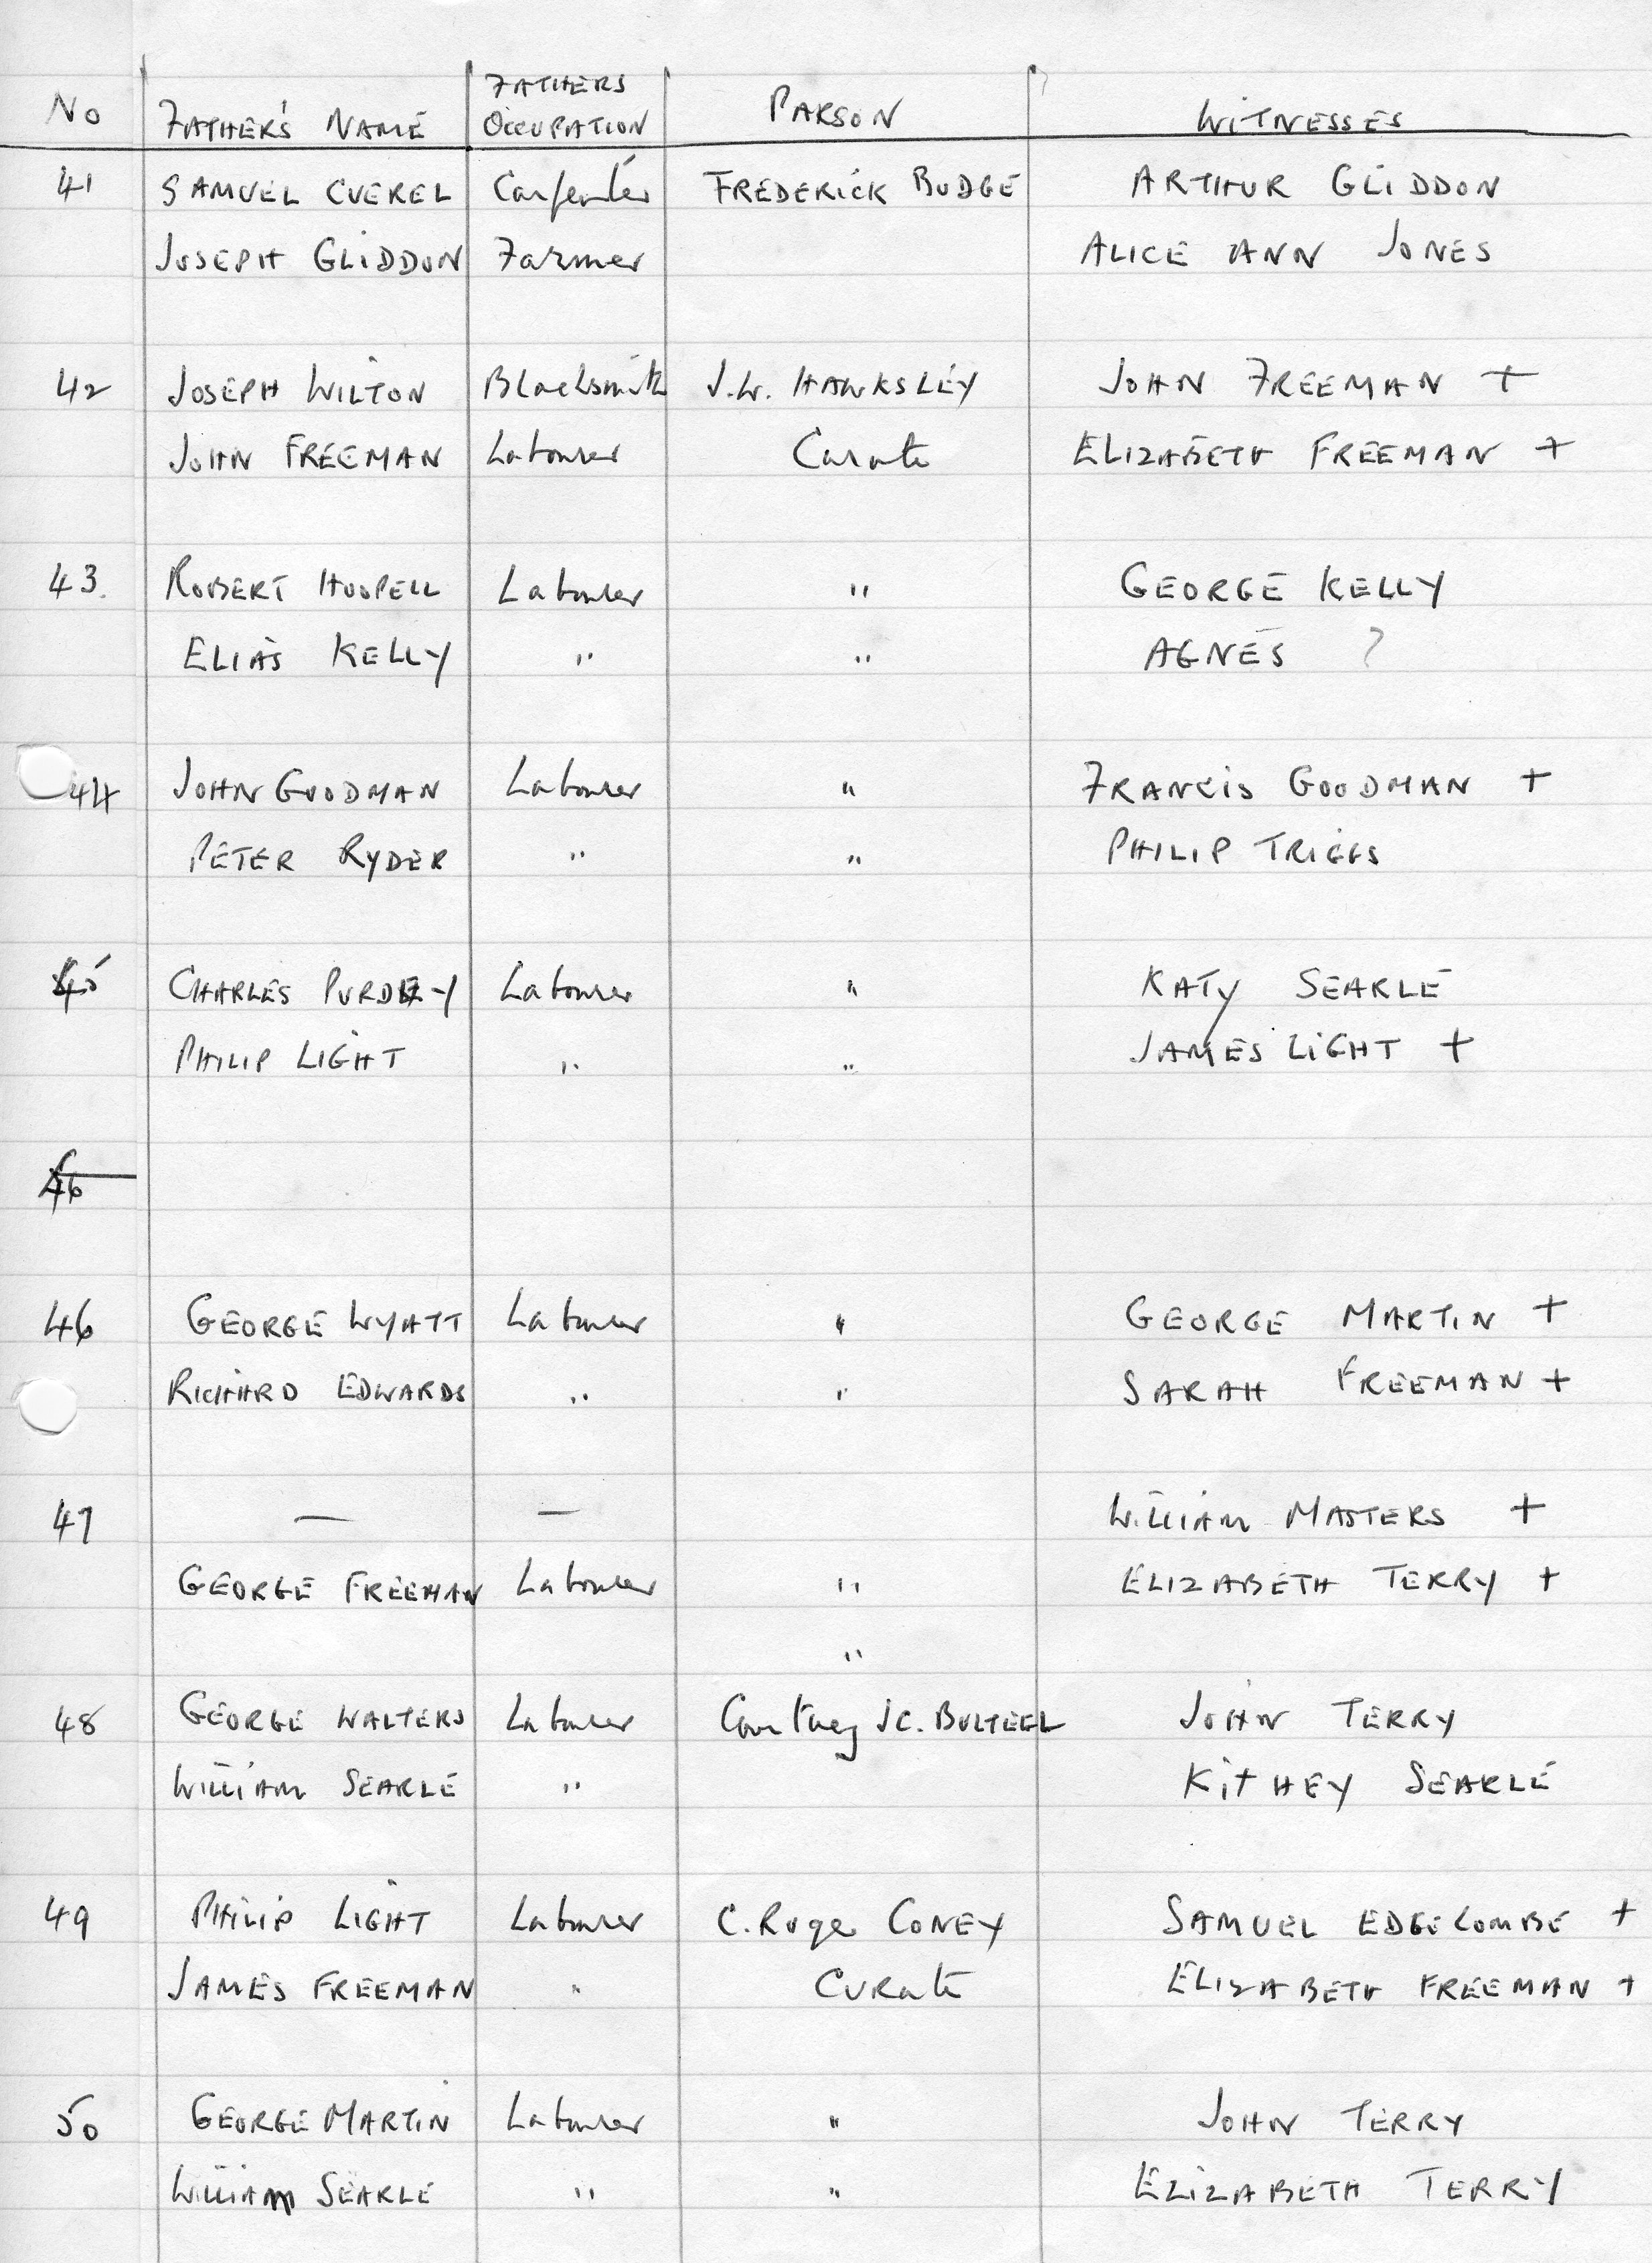 No FATHER'S NAME FATHERS OCCUPATION PARSON WITNESSES
41 SAMUEL CUEREL Carpenter FREDERICK BUDGE ARTHUR GLIDDON
JOSEPH GLIDDON Farmer ALICE ANN JONES
42 JOSEPH WILTON Blacksmith J.W. HAWKSLEY JOHN FREEMAN +
JOHN FREEMAN Labourer Curate ELIZABETH FREEMAN +
43. ROBERT HOOPELL Labourer " GEORGE KELLY
ELIAS KELLY " " AGNES ?
44 JOHN GOODMAN Labourer " FRANCIS GOODMAN +
PETER RYDER " " PHILIP TRIGGS
45 CHARLES PURDEY Labourer " KATY SEARLE
PHILIP LIGHT " " JAMES LIGHT +
46
46 GEORGE WYATT Labourer " GEORGE MARTIN +
RICHARD EDWARDS " " SARAH FREEMAN +
47 — — WILLIAM MASTERS +
GEORGE FREEMAN Labourer " ELIZABETH TERRY +
"
48 GEORGE WALTERS Labourer Courtney J.C. BULTEEL JOHN TERRY
WILLIAM SEARLE " KITHEY SEARLE
49 PHILIP LIGHT Labourer C. Roge CONEY SAMUEL EDGECOMBE +
JAMES FREEMAN " CURate ELIZABETH FREEMAN +
50 GEORGE MARTIN Labourer " JOHN TERRY
WILLIAM SEARLE " " ELIZABETH TERRY